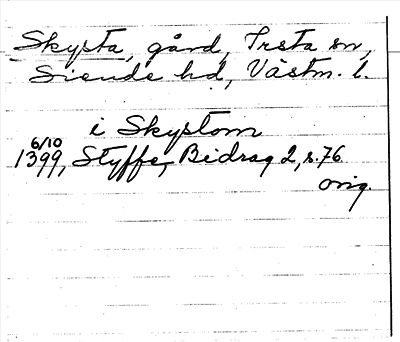 Skysta, gård, Irsta sn,
Siende hd, Västm. l.
i Skystom
6/10
1399, Styffe, Bidrag 2, s. 76
orig.